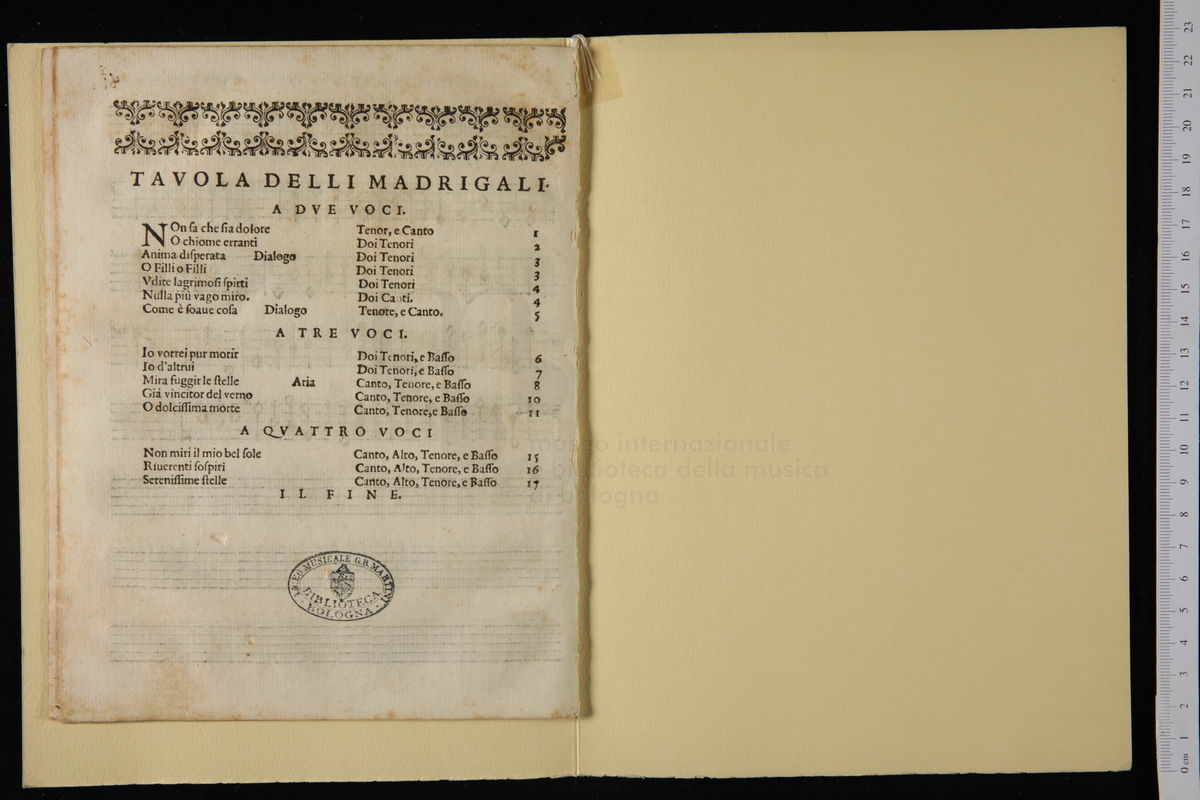 TAVOLA DELLI MADRIGALI.
A DVE VOCI.
NOn ſa che ſia dolore Tenor, e Canto 1
O chiome erranti Doi Tenori 2
Anima diſperata Dialogo Doi Tenori 3
O Filli o Filli Doi Tenori 3
Vdite lagrimoſi ſpirti Doi Tenori 4
Nulla più vago miro. Doi Canti. 4
Come è ſoaue coſa Dialogo Tenore, e Canto. 5
A TRE VOCI.
Io vorrei pur morir Doi Tenori, e Baſſo 6
Io d'altrui Doi Tenori, e Baſſo 7
Mira fuggir le ſtelle Aria Canto, Tenore, e Baſſo 8
Già vincitor del verno Canto, Tenore, e Baſſo 10
O dolciſſima morte Canto, Tenore, e Baſſo 11
A QVATTRO VOCI
Non miri il mio bel ſole Canto, Alto, Tenore, e Baſſo 15
Riuerenti ſoſpiri Canto, Alto, Tenore, e Baſſo 16
Sereniſſime ſtelle Canto, Alto, Tenore, e Baſſo 17
IL FINE.
LICEO MUSICALE G.B. MARTINI
BIBLIOTECA
BOLOGNA
museo internazionale
e biblioteca della musica
di bologna
0 cm 1 2 3 4 5 6 7 8 9 10 11 12 13 14 15 16 17 18 19 20 21 22 23